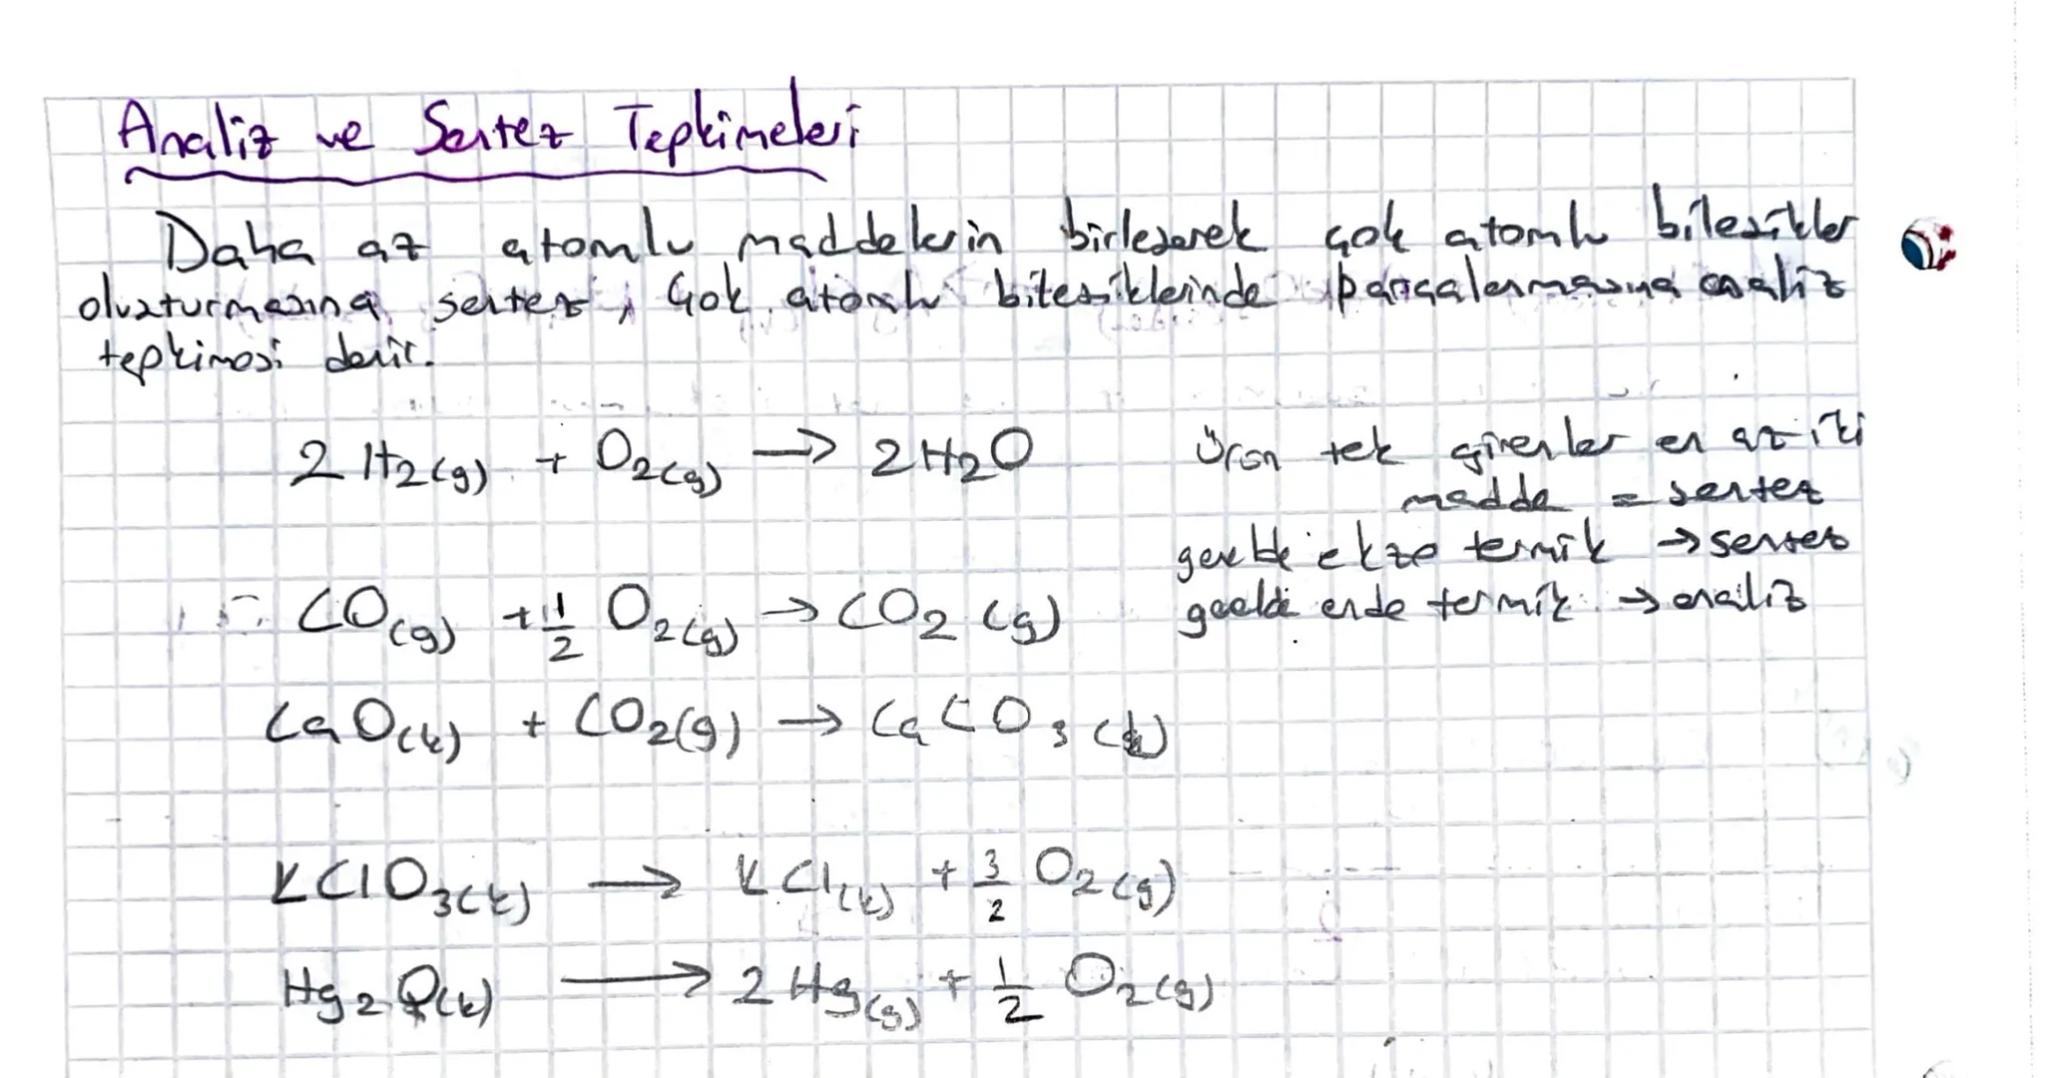 Analiz ve Sentez Tepkimeleri
Daha az atomlu maddelerin birleşerek çok atomlu bileşikler
oluşturmasına sentez, Çok atomlu bileşiklerinde parçalanmasına analiz
tepkimesi denir.
2 H2(g) + O2(g) → 2H2O
Ürün tek girenler en az iki
madde = sentez
genelde ekzo termik → sentez
genelde endo termik → analiz
CO(g) + 1/2 O2(g) → CO2 (g)
CaO(k) + CO2(g) → CaCO3 (k)
KClO3(k) → KCl(k) + 3/2 O2(g)
Hg2O(k) → 2 Hg(g) + 1/2 O2(g)